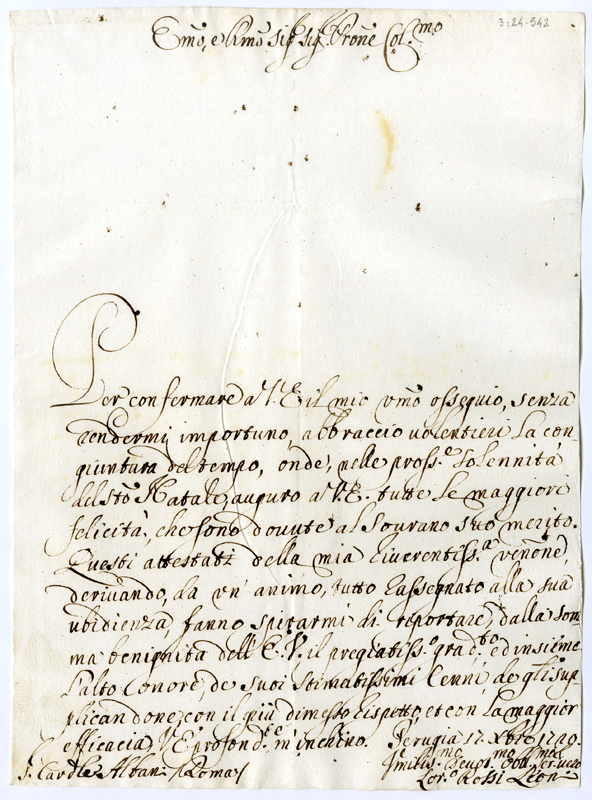 3-24-542
Emõ, e Rmõ Sig.r Sig.r Prone Col.mo
Per confermare a V.E. il mio vmõ ossequio, senza
rendermi importuno, abbraccio volentieri la con-
giuntura del tempo, onde, nelle pross.e solennità
del Sto Natale, auguro a V.E. tutte le maggiori
felicità, che sono dovute al Sovrano suo merito.
Questi attestati della mia riverentiss.a venõne,
derivando, da un' animo, tutto rassegnato alla sua
ubidienza, fanno sperarmi di riportare, dalla som-
ma benignità dell' E.V. il pregiatiss.o grad.to ed insieme
l'alto onore, de suoi stimatissimi cenni, de gli sup-
plicandone, con il più dimesso rispetto, et con la maggior
efficacia, V.E. profond.te m'inchino. Perugia 17. Xbre 1720.
S. Cardle Albani / Roma /
Vmiliss. Devot.mo Obb.mo Servo vero
Ler.o Rossi Leon